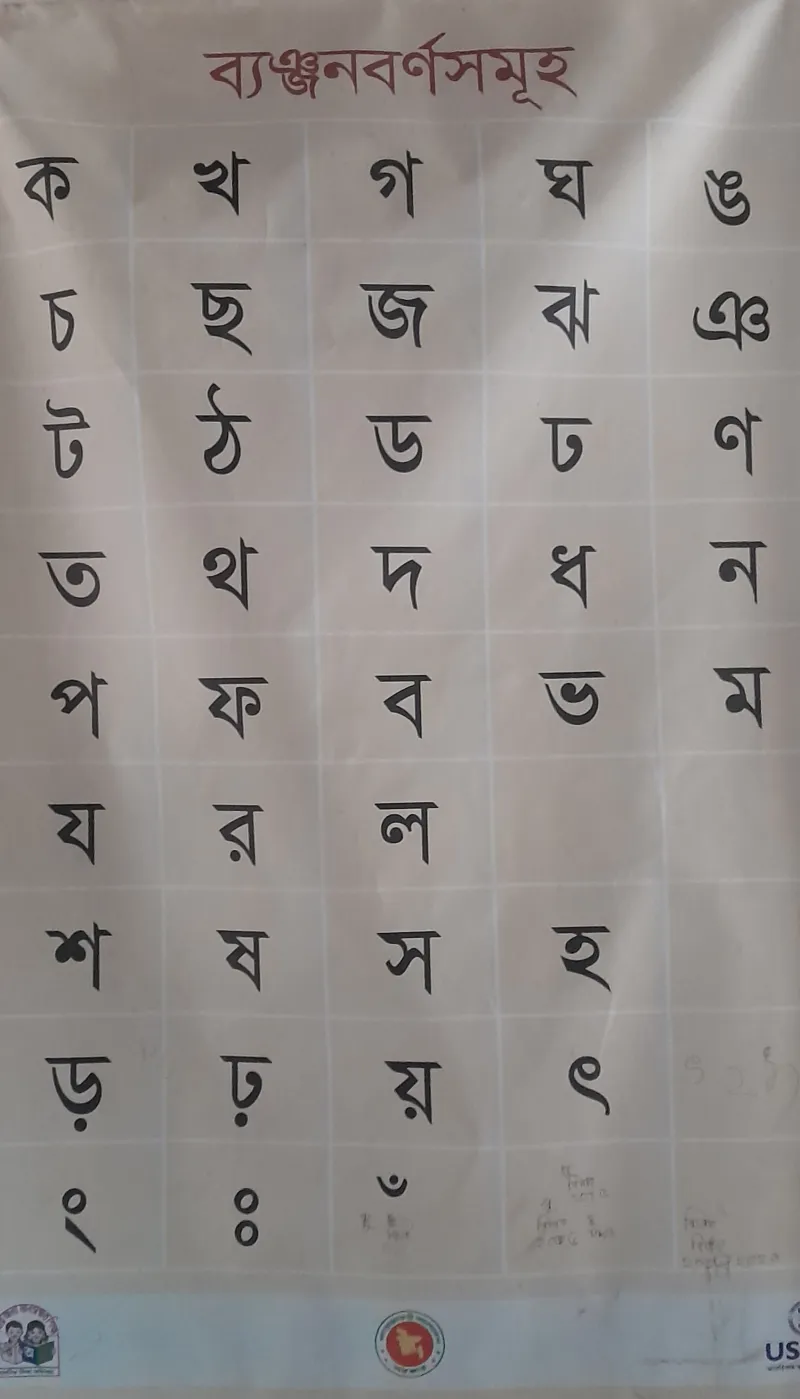 ব্যঞ্জনবর্ণসমূহ
ক খ গ ঘ ঙ
চ ছ জ ঝ ঞ
ট ঠ ড ঢ ণ
ত থ দ ধ ন
প ফ ব ভ ম
য র ল
শ ষ স হ
ড় ঢ় য় ৎ
ং ঃ ঁ
US